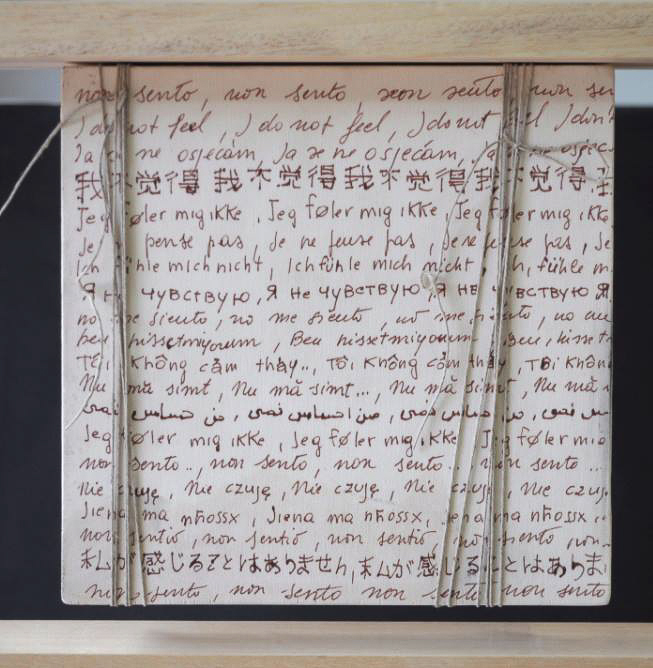 non sento, non sento, non sento, non sen
I do not feel, I do not feel, I do not feel I don't
Ja se ne osjećam, Ja se ne osjećam, Ja se ne osjeća
我不觉得 我不觉得 我不觉得 我不觉得 我
Jeg føler mig ikke, Jeg føler mig ikke, Jeg føler mig ikke
Je ne pense pas, Je ne pense pas, Je ne pense pas, Je
Ich fühle mich nicht, Ich fühle mich nicht Ich, fühle m
Я не чувствую, Я не чувствую, Я не чувствую Я
no me siento, no me siento, no me siento, no me
ben hissetmiyorum, Ben hissetmiyorum, Ben, hisset
Tôi không cảm thấy.., Tôi không cảm thấy, Tôi không
Nu mă simt, Nu mă simt..., Nu mă simt, Nu mă
من حساس نمی، من احساس نمی، من حساس نمی، من حس نمی
Jeg føler mig ikke, Jeg føler mig ikke, Jeg føler mig
non sento.., non sento, non sento.. non sento ...
Nie czuję, Nie czuję, Nie czuję, Nie czuję, Nie czuj
Jiena ma nħossx, Jiena ma nħossx, Jiena ma nħossx,
non sentió, non sentió, non sentió, non sento, non
私が感じることはありません, 私が感じることはありま
non sento, non sento, non sento, non sento